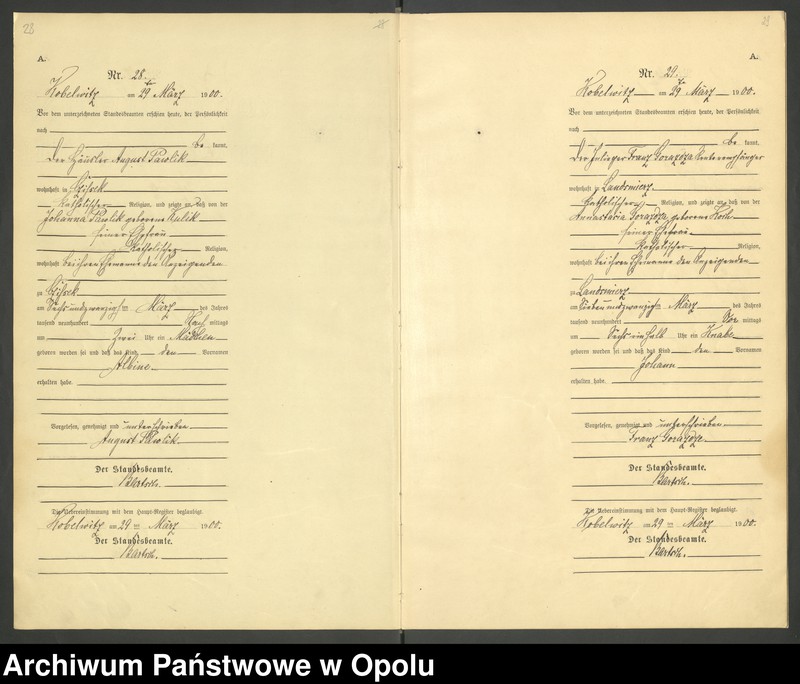 23
A.
Nr. 28.
Kobelwitz am 29 ten März 1900.
Vor dem unterzeichneten Standesbeamten erschien heute, der Persönlichkeit
nach
be kannt,
der Häusler August Pawlik
wohnhaft in
katholischer Religion, und zeigte an, daß von der
Johanna Pawlik geborene Kulik
seiner Ehefrau
katholischer Religion,
wohnhaft bei ihrem Ehemanne dem Anzeigenden
zu
am sechsundzwanzigsten März des Jahres
tausend neunhundert Nach mittags
um zwei Uhr ein Mädchen
geboren worden sei und daß das Kind den Vornamen
Albine
erhalten habe.
Vorgelesen, genehmigt und unterschrieben
August Pawlik
Der Standesbeamte.
Bartsch.
Die Uebereinstimmung mit dem Haupt-Register beglaubigt.
Kobelwitz am 29 ten März 1900.
Der Standesbeamte.
Bartsch.
A.
Nr. 29.
Kobelwitz am 29 ten März 1900.
Vor dem unterzeichneten Standesbeamten erschien heute, der Persönlichkeit
nach
be kannt,
der Inlieger Franz Rentenempfänger
wohnhaft zu Landsmierz
katholischer Religion, und zeigte an, daß von der
geborene
seiner Ehefrau
katholischer Religion,
wohnhaft bei ihrem Ehemanne dem Anzeigenden
zu Landsmierz
am siebenundzwanzigsten März des Jahres
tausend neunhundert Vor mittags
um sechs einhalb Uhr ein Knabe
geboren worden sei und daß das Kind den Vornamen
Johann
erhalten habe.
Vorgelesen, genehmigt und unterschrieben
Franz
Der Standesbeamte.
Bartsch.
Die Uebereinstimmung mit dem Haupt-Register beglaubigt.
Kobelwitz am 29 ten März 1900.
Der Standesbeamte.
Bartsch.
Archiwum Państwowe w Opolu